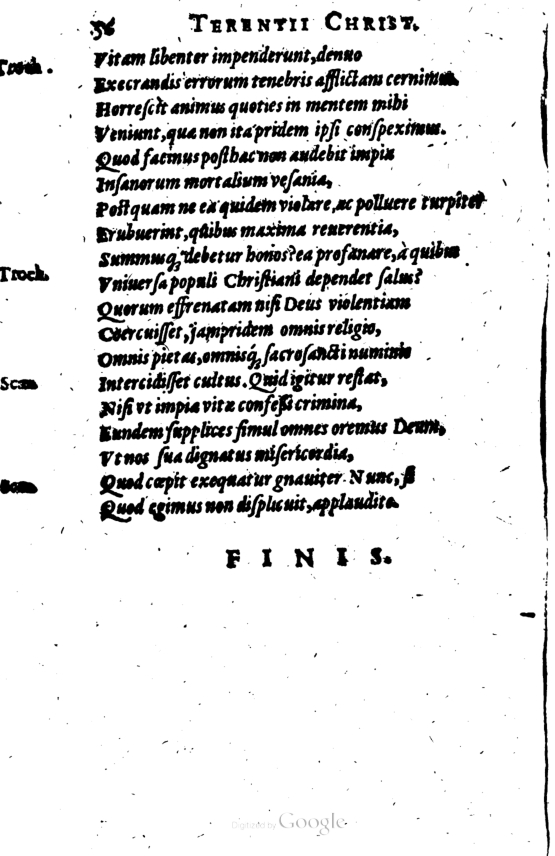 56 TERENTII CHRIST.
Vitam libenter impenderunt, denuo
Troch. Execrandis errorum tenebris afflictam cernimus.
Horreſcit animus quoties in mentem mihi
Veniunt, quæ non ita pridem ipſi conſpeximus.
Quod facinus poſthac non audebit impia
Inſanorum mortalium veſania,
Poſtquam ne ea quidem violare, ac polluere turpiter
Erubuerint, quibus maxima reuerentia,
Summusq́; debetur honos? ea profanare, à quibus
Troch. Vniuerſa populi Chriſtiani dependet ſalus?
Quorum effrenatam niſi Deus violentiam
Coërcuiſſet, jampridem omnis religio,
Omnis pietas, omnisq́; ſacroſancti numinis
Scan Intercidiſſet cultus. Quid igitur reſtat,
Niſi vt impia vitæ confeſſi crimina,
Eundem ſupplices ſimul omnes oremus Deum,
Vt nos ſua dignatus miſericordia,
Quod cœpit exequatur gnauiter. Nunc, ſi
Quod egimus non diſplicuit, applaudite.
FINIS.
Digitized by Google